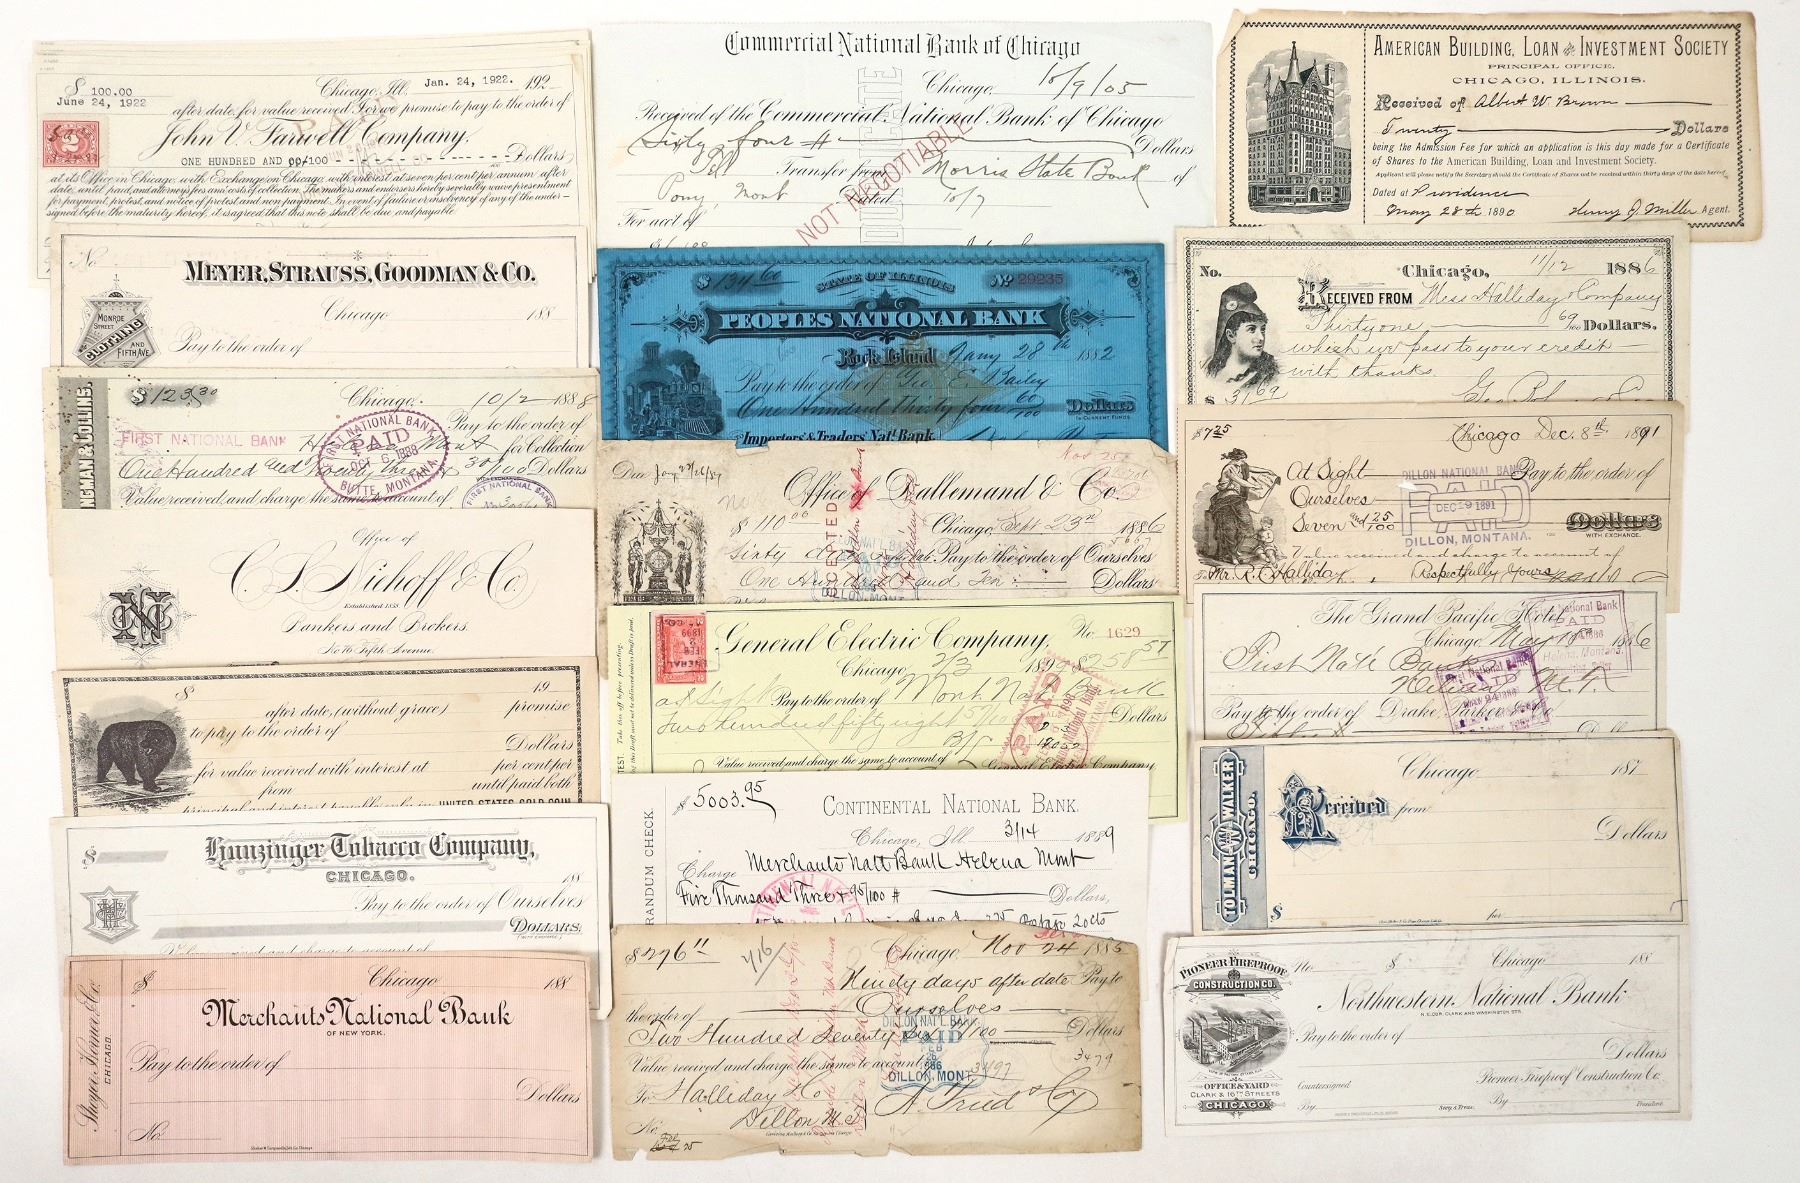 $ 100.00
Chicago, Ill. Jan. 24, 1922. 192
June 24, 1922
after date, for value received I or we promise to pay to the order of
John V. Farwell Company,
ONE HUNDRED AND 00/100 Dollars
at its Office in Chicago, with Exchange on Chicago, with interest at seven per cent per annum after
date, until paid, and attorney's fees and costs of collection. The makers and endorsers hereby severally waive presentment
for payment, protest, and notice of protest and non payment. In event of failure or insolvency of any of the under-
signed before the maturity hereof, it is agreed that this note shall be due and payable
No
MEYER, STRAUSS, GOODMAN & CO.
MONROE STREET
CLOTHING
AND FIFTH AVE
Chicago 188
Pay to the order of
$ 123.30
Chicago, 10/2 1888
Pay to the order of
FIRST NATIONAL BANK
for Collection
One Hundred and Twenty three 30/100 Dollars
Value received, and charge the same to account of
FIRST NATIONAL BANK
PAID
OCT 6 1888
BUTTE, MONTANA.
FIRST NATIONAL BANK
NGMAN & COLLINS.
Office of
C. S. Niehoff & Co.
Established 1858.
Bankers and Brokers.
No 76 Fifth Avenue.
$ 19
after date, (without grace) promise
to pay to the order of
Dollars
for value received with interest at per cent per
from until paid both
principal and interest payable only in UNITED STATES GOLD COIN
$
Hunzinger Tobacco Company,
CHICAGO. 188
Pay to the order of Ourselves
DOLLARS.
Value received and charge to account of
$ Chicago 188
Merchants National Bank
OF NEW YORK.
Pay to the order of
Dollars
No.
CHICAGO.
Commercial National Bank of Chicago
Chicago, 10/9/05
Received of the Commercial National Bank of Chicago
Sixty four # Dollars
Transfer from Morris State Bank of
Pony, Mont dated 10/7
For acct of
NOT NEGOTIABLE
DUPLICATE
$ 134.60
STATE OF ILLINOIS
No 29235
PEOPLES NATIONAL BANK
Rock Island Jany 28th 1882
Pay to the order of Geo. E. Bailey
One Hundred Thirty four 60/100 Dollars
IN CURRENT FUNDS.
Importers & Traders' Nat'l. Bank
Office of Dallemand & Co.
$110.00 Chicago, Sept 23rd 1886
Sixty days Pay to the order of Ourselves
One Hundred and Ten Dollars
ACCEPTED
DILLON NAT'L BANK
DILLON, MONT.
General Electric Company, No. 1629
Chicago, 2/3 1899
at Sight Pay to the order of Mont. Nat. Bank
Two hundred fifty eight 57/100 Dollars
Value received, and charge the same to account of
General Electric Company
PAID
$5003.95
CONTINENTAL NATIONAL BANK.
Chicago, Ill. 3/14 1889
Charge Merchants Natl Bank Helena Mont
Five Thousand Three & 95/100 # Dollars,
RANDUM CHECK
$276.11 416
Chicago, Nov 24 1885
Ninety days after date Pay to
the order of Ourselves
Two Hundred Seventy six 11/100 Dollars
Value received and charge the same to account of
To Halliday & Co
Dillon M.T.
No.
A. Friend & Co
DILLON NAT'L BANK
PAID
FEB 26 1886
DILLON, MONT.
3497
3479
AMERICAN BUILDING, LOAN AND INVESTMENT SOCIETY
PRINCIPAL OFFICE,
CHICAGO, ILLINOIS.
Received of Albert W. Brown
Twenty Dollars
being the Admission Fee for which an application is this day made for a Certificate
of Shares to the American Building, Loan and Investment Society.
Applicant will please notify the Secretary should the Certificate of Shares not be received within thirty days of the date hereof
Dated at Providence
May 28th 1890 Henry J. Miller Agent.
No. Chicago, 11/12 1886
RECEIVED FROM Mess Halliday & Company
Thirty one 69/100 Dollars.
which we pass to your credit
with thanks.
$ 31.69
$7.25 Chicago Dec. 8th. 1891
At Sight Pay to the order of
Ourselves
Seven and 25/100 Dollars
WITH EXCHANGE.
Value received and charge to account of
To Mr. R. C. Halliday. Respectfully Yours
DILLON NATIONAL BANK
PAID
DEC 29 1891
DILLON, MONTANA.
The Grand Pacific Hotel
Chicago, May 18th 1886
First Natl Bank
Helena M.T.
Pay to the order of Drake, Parker & Co
First National Bank
PAID
Helena, Montana.
Chicago 187
Received from
Dollars
$ per
TOLMAN & WALKER
CHICAGO.
PIONEER FIREPROOF
CONSTRUCTION CO.
No. $ Chicago 188
Northwestern National Bank
N.E. COR. CLARK AND WASHINGTON STS.
Pay to the order of
Dollars
Countersigned Pioneer Fireproof Construction Co.
By Secy & Treas. By President
OFFICE & YARD
CLARK & 16TH STREETS
CHICAGO.